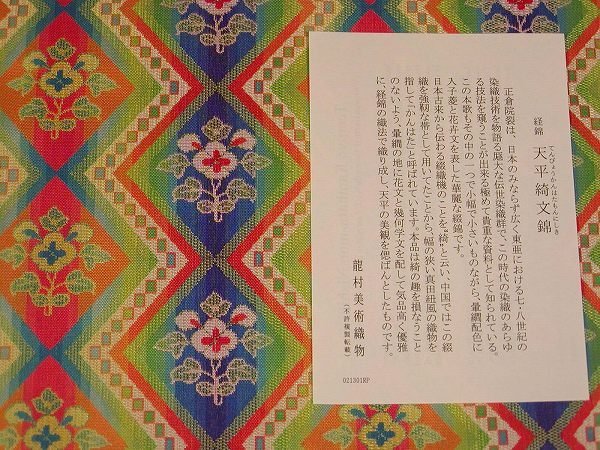 経錦　天平綺文錦
てんぴょうかんはたもんにしき
正倉院裂は、日本のみならず広く東亜における七・八世紀の
染織技術を物語る厖大な伝世染織群で、この時代の染織のあらゆ
る技法を窺うことが出来る極めて貴重な資料として知られている。
この本歌もその中の一つで小幅で小さいものながら、暈繝配色に
入子菱と花卉文を表した華麗な綴錦です。
日本古来から伝わる綴織機のことを"綺"と云い、中国ではこの綴
織を強靭な帯として用いてたことから、幅の狭い真田紐風の織物を
指して「かんはた」と呼ばれています。本品は綺の趣を損なうこと
のないよう、暈繝の地に花文と幾何学文を配して気品高く優雅
に、経錦の織法で織り成し、天平の美観を偲ばんとしたものです。
龍村美術織物
（不許複製転載）
021301RP